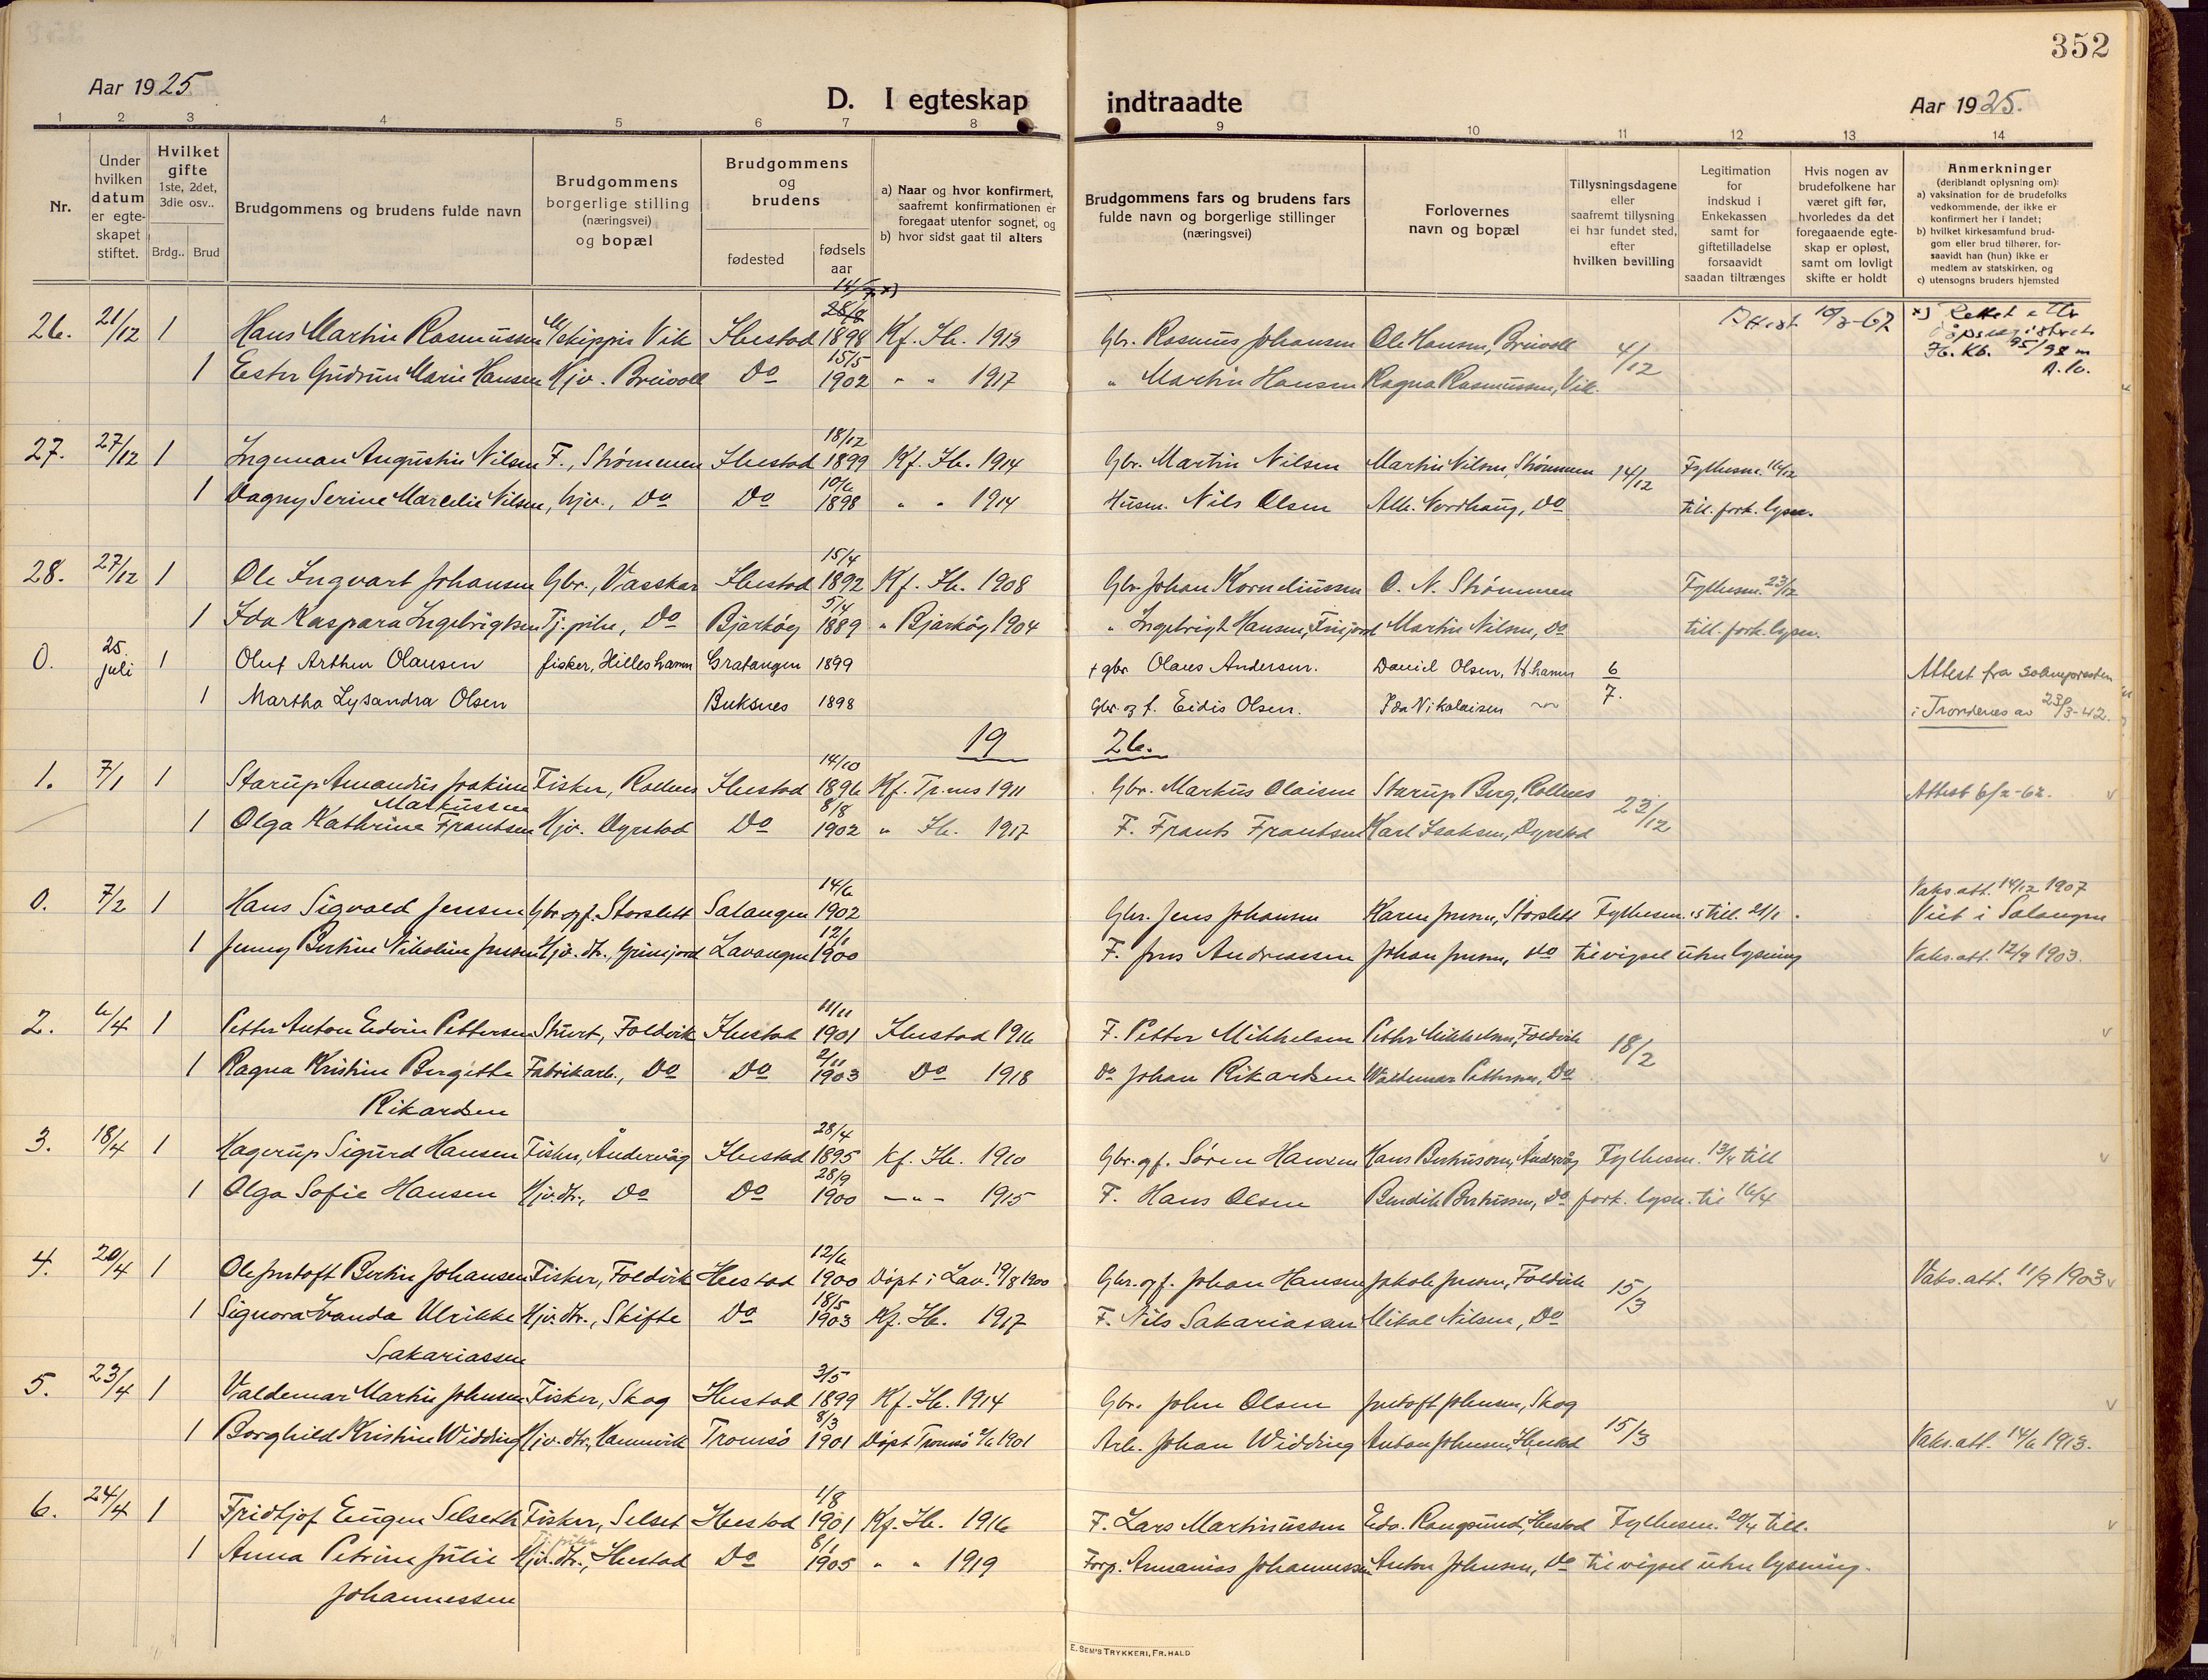 352
Aar 1925
D. I egteskap indtraadte
Aar 1925.
1 2 3 4 5 6 7 8 9 10 11 12 13 14
Nr.
Under hvilken datum er egteskapet stiftet.
Hvilket gifte 1ste, 2det, 3die osv..
Brdg.. Brud
Brudgommens og brudens fulde navn
Brudgommens borgerlige stilling (næringsvei) og bopæl
Brudgommens og brudens
fødested
fødsels aar
a) Naar og hvor konfirmert, saafremt konfirmationen er foregaat utenfor sognet, og
b) hvor sidst gaat til alters
Brudgommens fars og brudens fars fulde navn og borgerlige stillinger (næringsvei)
Forlovernes navn og bopæl
Tillysningsdagene eller saafremt tillysning ei har fundet sted, efter hvilken bevilling
Legitimation for indskud i Enkekassen samt for giftetilladelse forsaavidt saadan tiltrænges
Hvis nogen av brudefolkene har været gift før, hvorledes da det foregaaende egteskap er opløst, samt om lovligt skifte er holdt
Anmerkninger (deriblandt oplysning om):
a) vaksination for de brudefolks vedkommende, der ikke er konfirmert her i landet;
b) hvilket kirkesamfund brudgom eller brud tilhører, forsaavidt han (hun) ikke er medlem av statskirken, og
c) utensogns bruders hjemsted
26. 21/12 1 Hans Martin Rasmussen Vik Ibestad 14/7 x) 28/8 1898 Kf. Ib. 1913 Gbr. Rasmus Johansen Ole Hansen, Breivoll 4/12 Attest 10/3-67 x) Rettet
Ib. Kb. 95/98
1 Ester Gudrun Marie Hansen Hjv. Breivoll Do 15/5 1902 " " 1917 " Martin Hansen Ragna Rasmussen, Vik.
27. 27/12 1 Ingeman Augustin Nilsen F., Strømmen Ibestad 18/12 1899 Kf. Ib. 1914 Gbr. Martin Nilsen Martin Nilsen, Strømmen 14/12 Fylkesm. 16/12
1 Dagny Serine Marcelie Nilsen, hjv., Do Do 10/6 1898 " " 1914 Husm. Nils Olsen Alb. Nordhaug, Do till. fork. lysn.
28. 27/12 1 Ole Ingvart Johansen Gbr., Vasskar Ibestad 15/4 1892 Kf. Ib. 1908 Gbr. Johan Korneliussen O. N. Strømmen Fylkesm. 23/12
1 Ida Kaspara Ingebrigtsen Tj.pike, Do Bjarkøy 5/4 1889 " Bjarkøy 1904 " Ingebrigt Hansen, Martin Nilsen, Do till. fork. lysn.
0. 25. juli 1 Oluf Arthur Olausen fisker, Hilleshamn Gratangen 1899 + gbr. Olaus Andersen. Daniel Olsen, H.hamn 6/7. Attest fra soknepresten
1 Martha Lysandra Olsen Buksnes 1898 Gbr. og f. Eidis Olsen. Ida Nikolaisen i Trondenes av 23/3-42.
19 26.
1. 7/1 1 Starup Amandus Joakim Fisker, Rollnes Ibestad 14/10 1896 Kf. Tr.nes 1911 Gbr. Markus Olaisen Starup Berg, Rollnes 23/12 Attest 6/2-62.
Markussen
1 Olga Kathrine Frantsen Hjv. Dyrstad Do 8/8 1902 " Ib. 1917 F. Frants Frantsen Karl Isaksen, Dyrstad
0. 7/2 1 Hans Sigvald Jensen Gbr. og f. Storslett Salangen 14/6 1902 Gbr. Jens Johansen Karen Jensen, Storslett Fylkesm.s till. 21/1. Vaks.att. 14/12 1907
Viet i Salangen
1 Jenny Bertine Nikoline Jensen Hjv. dtr., Lavangen 12/1 1900 F. Jens Andreassen Johan Jensen, do til vigsel uten lysning Vaks.att. 12/9 1903.
2. 6/4 1 Petter Anton Edvin Pettersen Stuert, Foldvik Ibestad 11/11 1901 Ibestad 1916 F. Petter Mikkelsen Petter Mikkelsen, Foldvik 18/2
1 Ragna Kristine Bergitte Fabrikarb., Do Do 2/11 1903 Do 1918 Do Johan Rikardsen Waldemar Pettersen, Do
Rikardsen
3. 18/4 1 Hagerup Sigurd Hansen Fisker, Åndervåg Ibestad 28/4 1895 Kf. Ib. 1910 Gbr. og f. Søren Hansen Hans Berteussen, Åndervåg Fylkesm. 13/4 till
1 Olga Sofie Hansen Hjv.dtr., Do Do 28/9 1900 — " — 1915 F. Hans Olsen Bendik Berteussen, Do fork. lysn. til 16/4
4. 20/4 1 Ole Jentoft Bertin Johansen Fisker, Foldvik Ibestad 12/6 1900 Døpt i Lav. 19/8 1900 Gbr. og f. Johan Hansen Jakob Jensen, Foldvik 15/3 Vaks.att. 11/9 1903
1 Signora Vanda Ulrikke Hjv. dtr., Skifte Do 18/5 1903 Kf. Ib. 1917 F. Nils Sakariassen Mikal Nilsen, Do
Sakariassen
5. 23/4 1 Valdemar Martin Johnsen Fisker, Skog Ibestad 3/5 1899 Kf. Ib. 1914 Gbr. John Olsen Jentoft Johnsen, Skog 15/3
1 Borghild Kristine Widding Hjv. dtr., Hamnvik Tromsø 8/3 1901 Døpt Tromsø 2/6 1901 Arb. Johan Widding Anton Johnsen, Ibestad Vaks.att. 14/6 1913.
6. 24/4 1 Fridtjof Eugen Selseth Fisker, Selset Ibestad 4/8 1901 Kf. Ib. 1916 F. Lars Martinussen Edv. Rangsund, Ibestad Fylkesm. 20/4 till.
1 Anna Petrine Julie Hjv. dtr., Ibestad Do 8/1 1905 " " 1919 Forp. Annanias Johannessen Anton Johnsen, Do til vigsel uten lysning.
Johannessen
E. SEM'S TRYKKERI, FR.HALD